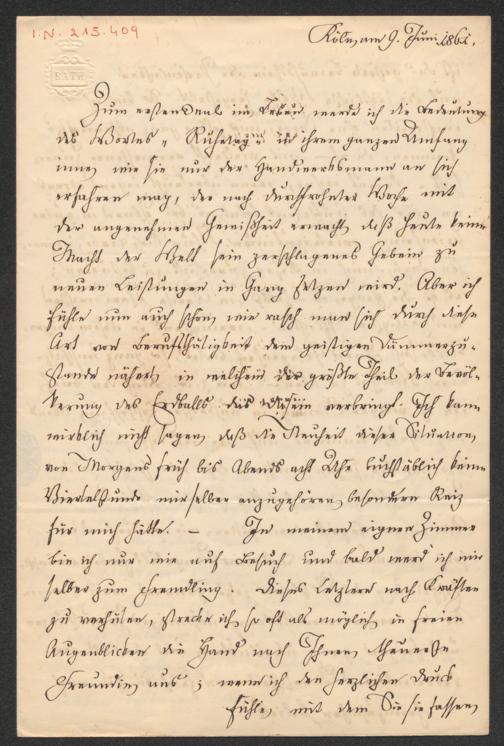 I.N. 215.409
BATH
Köln, am 9. Juni 1861.
Zum ersten Mal im Leben werde ich die Bedeutung
des Wortes „Ruhetag" in ihrem ganzen Umfang
innen, wie sie nur der Handwerksmann an sich
erfahren mag, der nach durchfrohnter Woche mit
der angenehmen Gewißheit erwacht, daß heute keine
Macht der Welt sein zerschlagenes Gebein zu
neuen Leistungen in Gang setzen wird. Aber ich
fühle nun auch schon, wie rasch man sich durch diese
Art von Berufsthätigkeit dem geistigen Dämmerzu-
stande nähert, in welchem der größte Theil der Bevöl-
kerung des Erdballs das Dasein verbringt. Ich kann
wirklich nicht sagen, daß die Neuheit dieser Situation,
von Morgens früh bis Abends acht Uhr buchstäblich keine
Viertelstunde mir selber anzugehören, besondern Reiz
für mich hätte. — In meinem eignen Zimmer
bin ich nur wie auf Besuch und bald werd ich mir
selber zum Fremdling. Dieses Letztere nach Kräften
zu verhüten, strecke ich, so oft als möglich, in freien
Augenblicken die Hand nach Ihnen, theuerste
Freundin, aus; wenn ich den herzlichen Druck
fühle, mit dem Sie sie fassen,